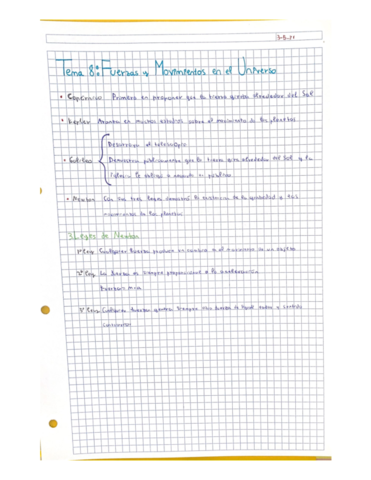 Tema 8: Fuerzas y Movimientos en el Universo
• Copérnico Primero en proponer que la tierra giraba alrededor del Sol
• Kepler en muchos estudios sobre el movimiento de los planetas
el telescopio
• Galileo Demuestra públicamente que la tierra gira alrededor del Sol y la
Iglesia le obligó a en público
• Newton Con sus tres leyes la existencia de la gravedad y los
movimientos de los planetas
3 Leyes de Newton
1ª Ley Cualquier fuerza produce un cambio en el movimiento de un objeto
2ª Ley La fuerza es siempre proporcional a la
3ª Ley Cualquier fuerza genera siempre otra fuerza de igual valor y sentido
contrario